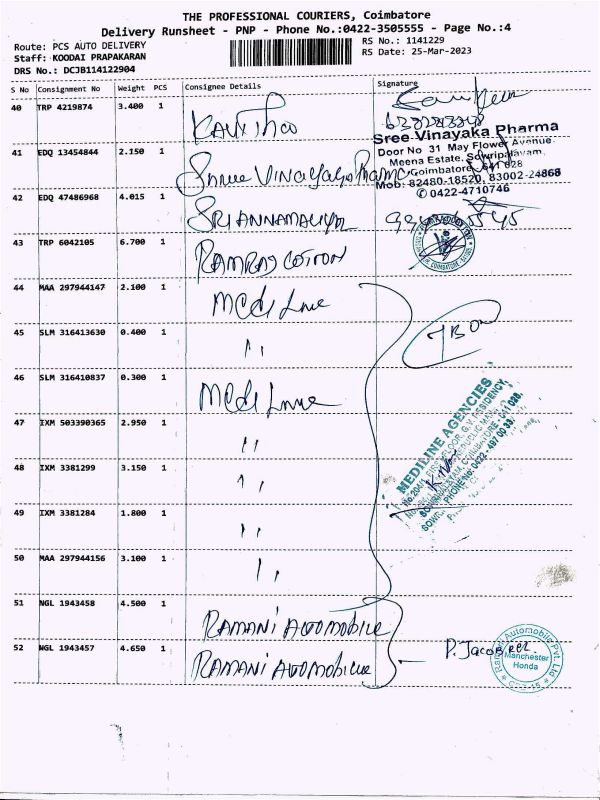 THE PROFESSIONAL COURIERS, Coimbatore
Delivery Runsheet - PNP - Phone No.:0422-3505555 - Page No.:4
Route: PCS AUTO DELIVERY
Staff: KOODAI PRAPAKARAN
DRS No.: DCJB114122904
RS No.: 1141229
RS Date: 25-Mar-2023
S No Consignment No Weight PCS Consignee Details Signature
40 TRP 4219874 3.400 1
Sree Vinayaka Pharma
Door No 31 May Flower Avenue
Meena Estate, Sowripalayam,
Coimbatore - 641 028
Mob: 82480-18520, 83002-24868
✆ 0422-4710746
41 EDQ 13454844 2.150 1 Shree Vinayaga Pharma
42 EDQ 47486968 4.015 1 SRI ANNAMALIYAR
43 TRP 6042105 6.700 1 RAMRAJ COTTON
44 MAA 297944147 2.100 1 Medi Line
45 SLM 316413630 0.400 1 ''
46 SLM 316410837 0.300 1 Medi Line
47 IXM 503390365 2.950 1 ''
MEDILINE AGENCIES
48 IXM 3381299 3.150 1 ''
49 IXM 3381284 1.800 1 ''
50 MAA 297944156 3.100 1 ''
51 NGL 1943458 4.500 1 RAMANI AUTOMOBILE
52 NGL 1943457 4.650 1 RAMANI AUTOMOBILE
P. Jacob
Ramani Automobile Pvt. Ltd
Manchester
Honda